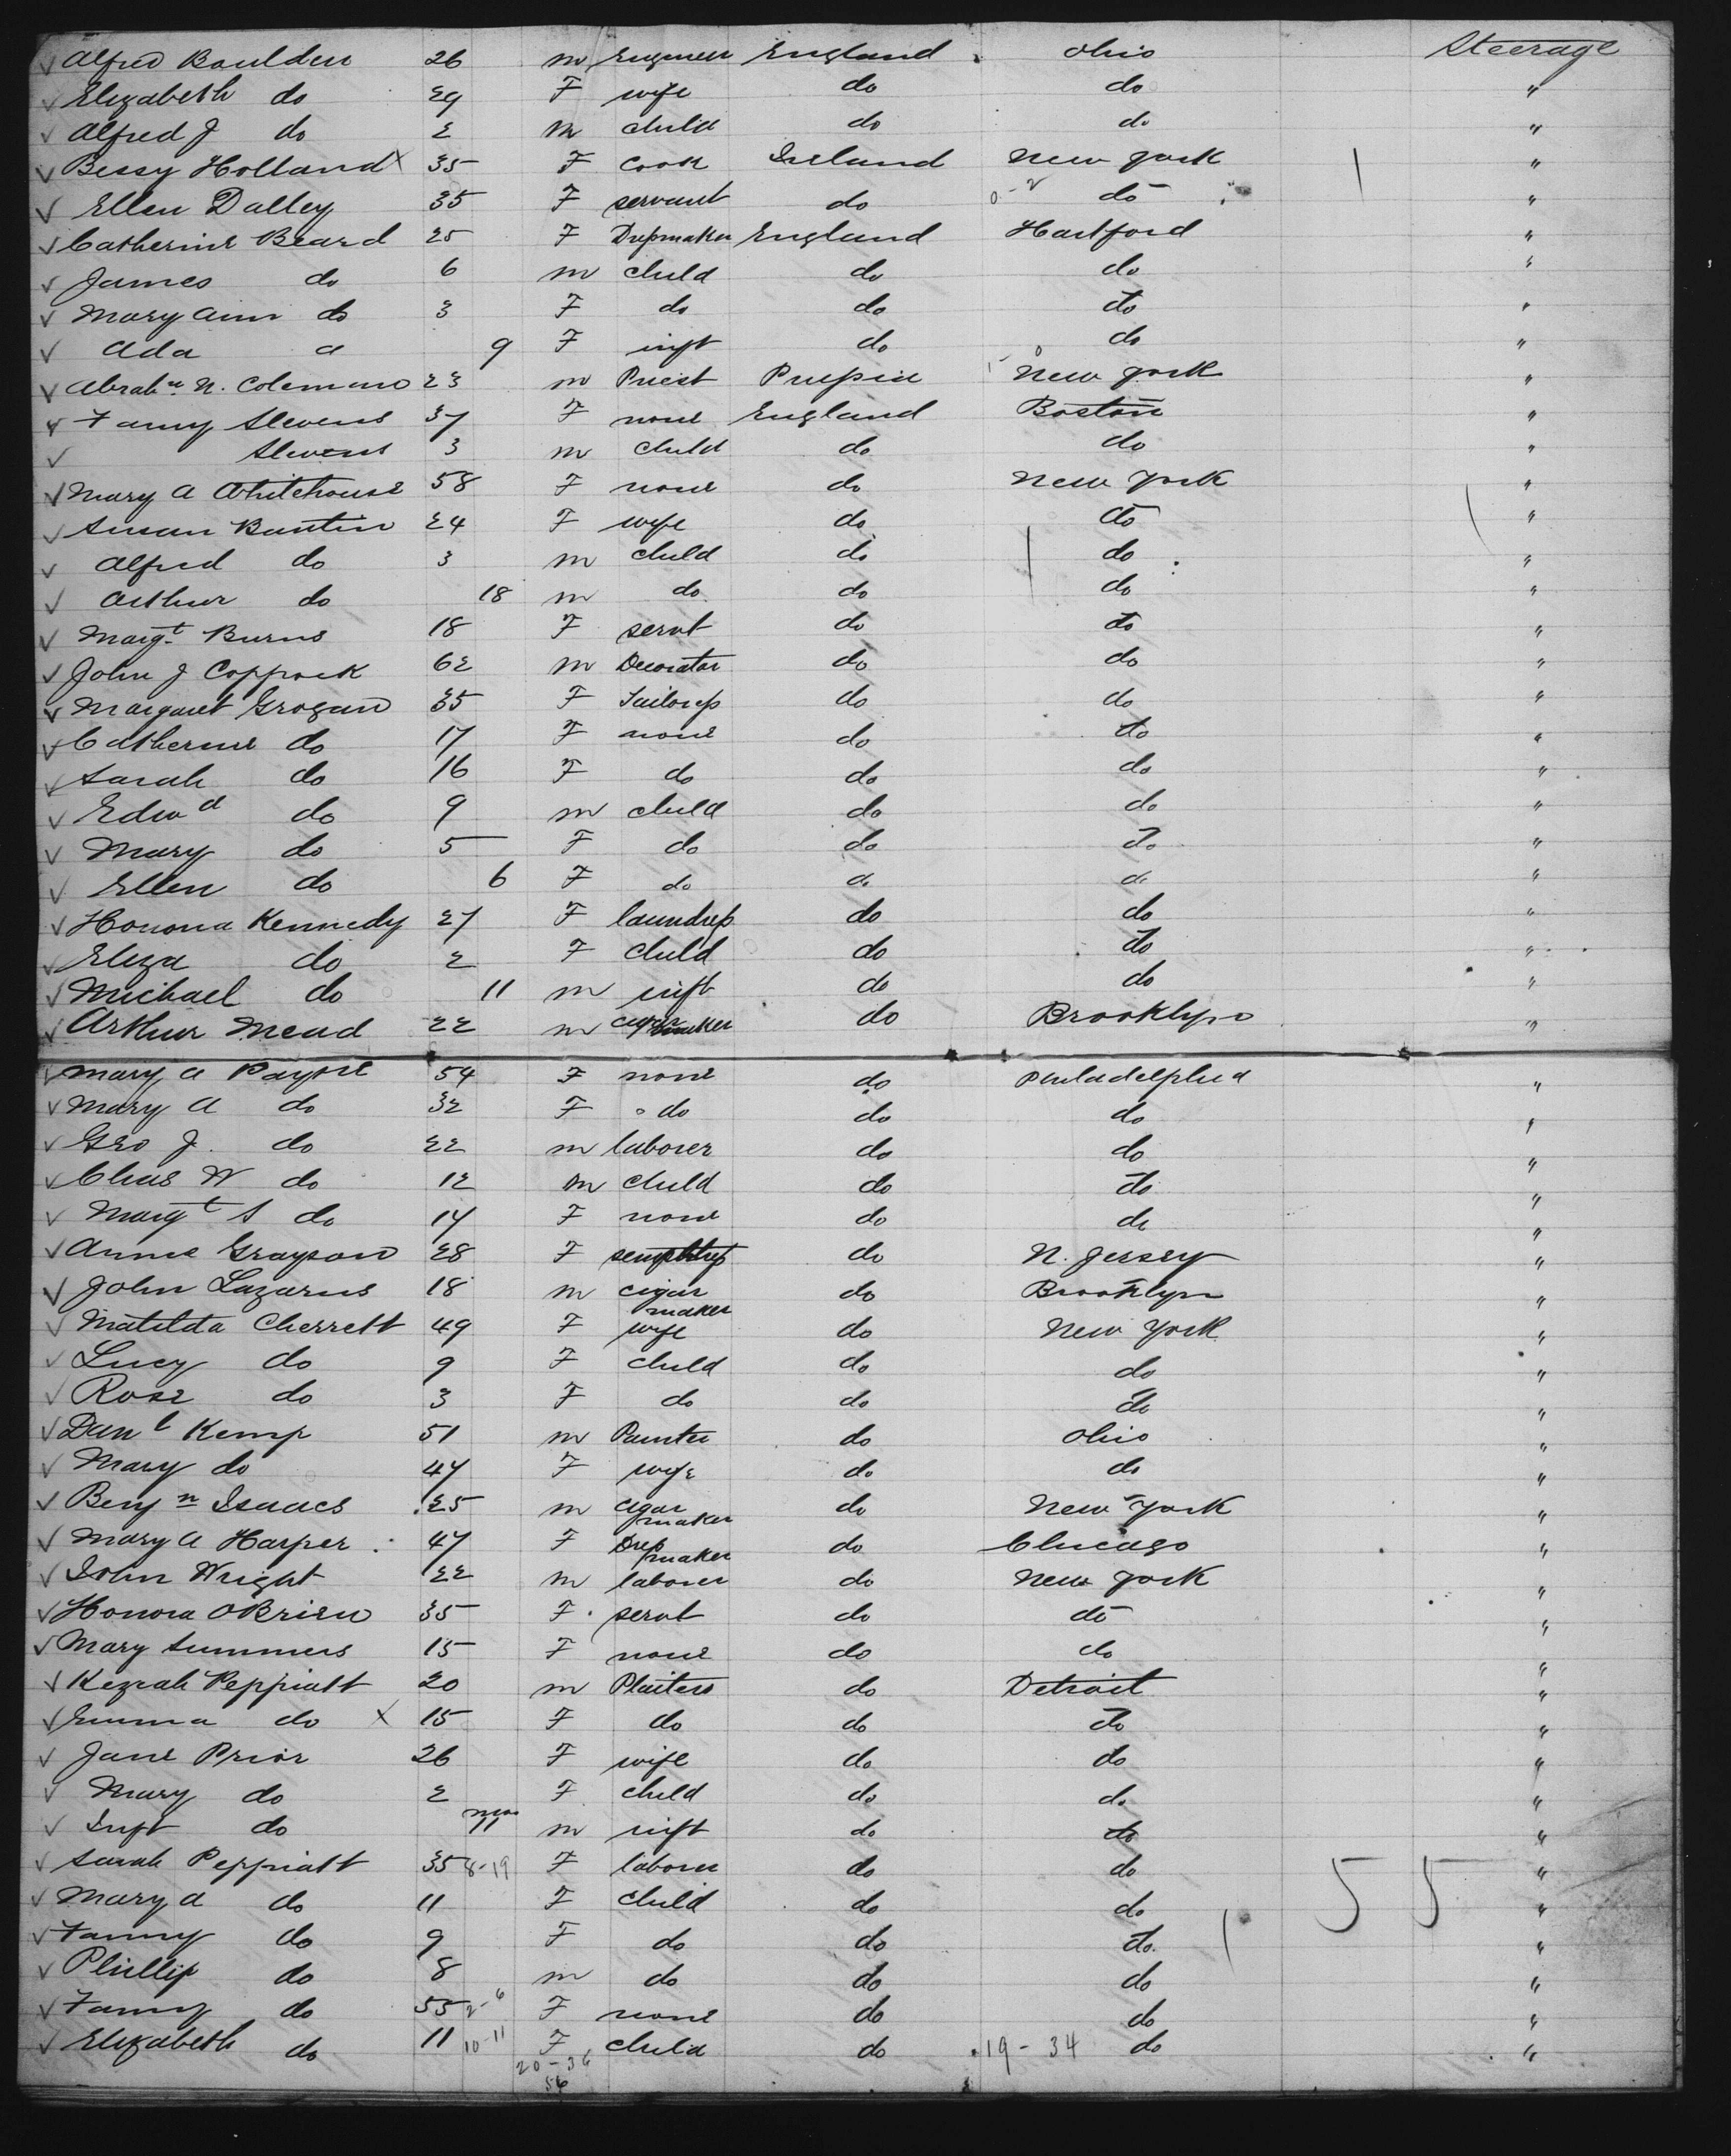 Alfred Boulden 26 m Engineer England Ohio Steerage
Elizabeth do 29 F wife do do "
Alfred J do 2 m child do do "
Bessy Holland x 35 F Cook Ireland New York "
Ellen Dalley 35 F servant do do "
Catherine Beard 25 F Dressmaker England Hartford "
James do 6 m child do do "
Mary Ann do 3 F do do do "
Ada 9 F inft do do "
Abrahm. N. Coleman 23 m Priest Prussia New York "
Fanny Stevens 37 F none England Boston "
Stevens 3 m child do do "
Mary A Whitehouse 58 F none do New York "
Susan Buntin 24 F wife do do "
Alfred do 3 m child do do "
Arthur do 18 m do do do "
Margt. Burns 18 F servt do do "
John J Coppock 62 m Decorator do do "
Margaret Grogan 35 F Tailoress do do "
Catherine do 17 F none do do "
Sarah do 16 F do do do "
Edwd do 9 m child do do "
Mary do 5 F do do do "
Ellen do 6 F do do do "
Honora Kennedy 27 F laundress do do "
Eliza do 2 F Child do do "
Michael do 11 m inft do do "
Arthur Mead 22 m cigar maker do Brooklyn "
Mary A Payne 54 F none do Philadelphia "
Mary A do 32 F do do do "
Geo J. do 22 m laborer do do "
Chas W do 12 m child do do "
Margt S do 14 F none do do "
Annie Grayson 28 F sempstress do N. Jersey "
John Lazarus 18 m cigar maker do Brooklyn "
Matilda Cherrett 49 F wife do New York "
Lucy do 9 F child do do "
Rose do 3 F do do do "
Danl Kemp 51 m Painter do Ohio "
Mary do 47 F wife do do "
Benjn Isaacs 25 m cigar maker do New York "
Mary A Harper 47 F Dress maker do Chicago "
John Wright 22 m laborer do New York "
Honora OBrien 35 F servt do do "
Mary Summers 15 F none do do "
Keziah Peppiatt 20 m Plaiters do Detroit "
Emma do x 15 F do do do "
Jane Prior 26 F wife do do "
Mary do 2 F child do do "
Inft do 11 mos m inft do do "
Sarah Peppiatt 35 8-19 F laborer do do 55 "
Mary A do 11 F child do do "
Fanny do 9 F do do do "
Phillip do 8 m do do do "
Fanny do 55 2-6 F none do do "
Elizabeth do 11 10-11 F child do 19-34 do "
20-36
56